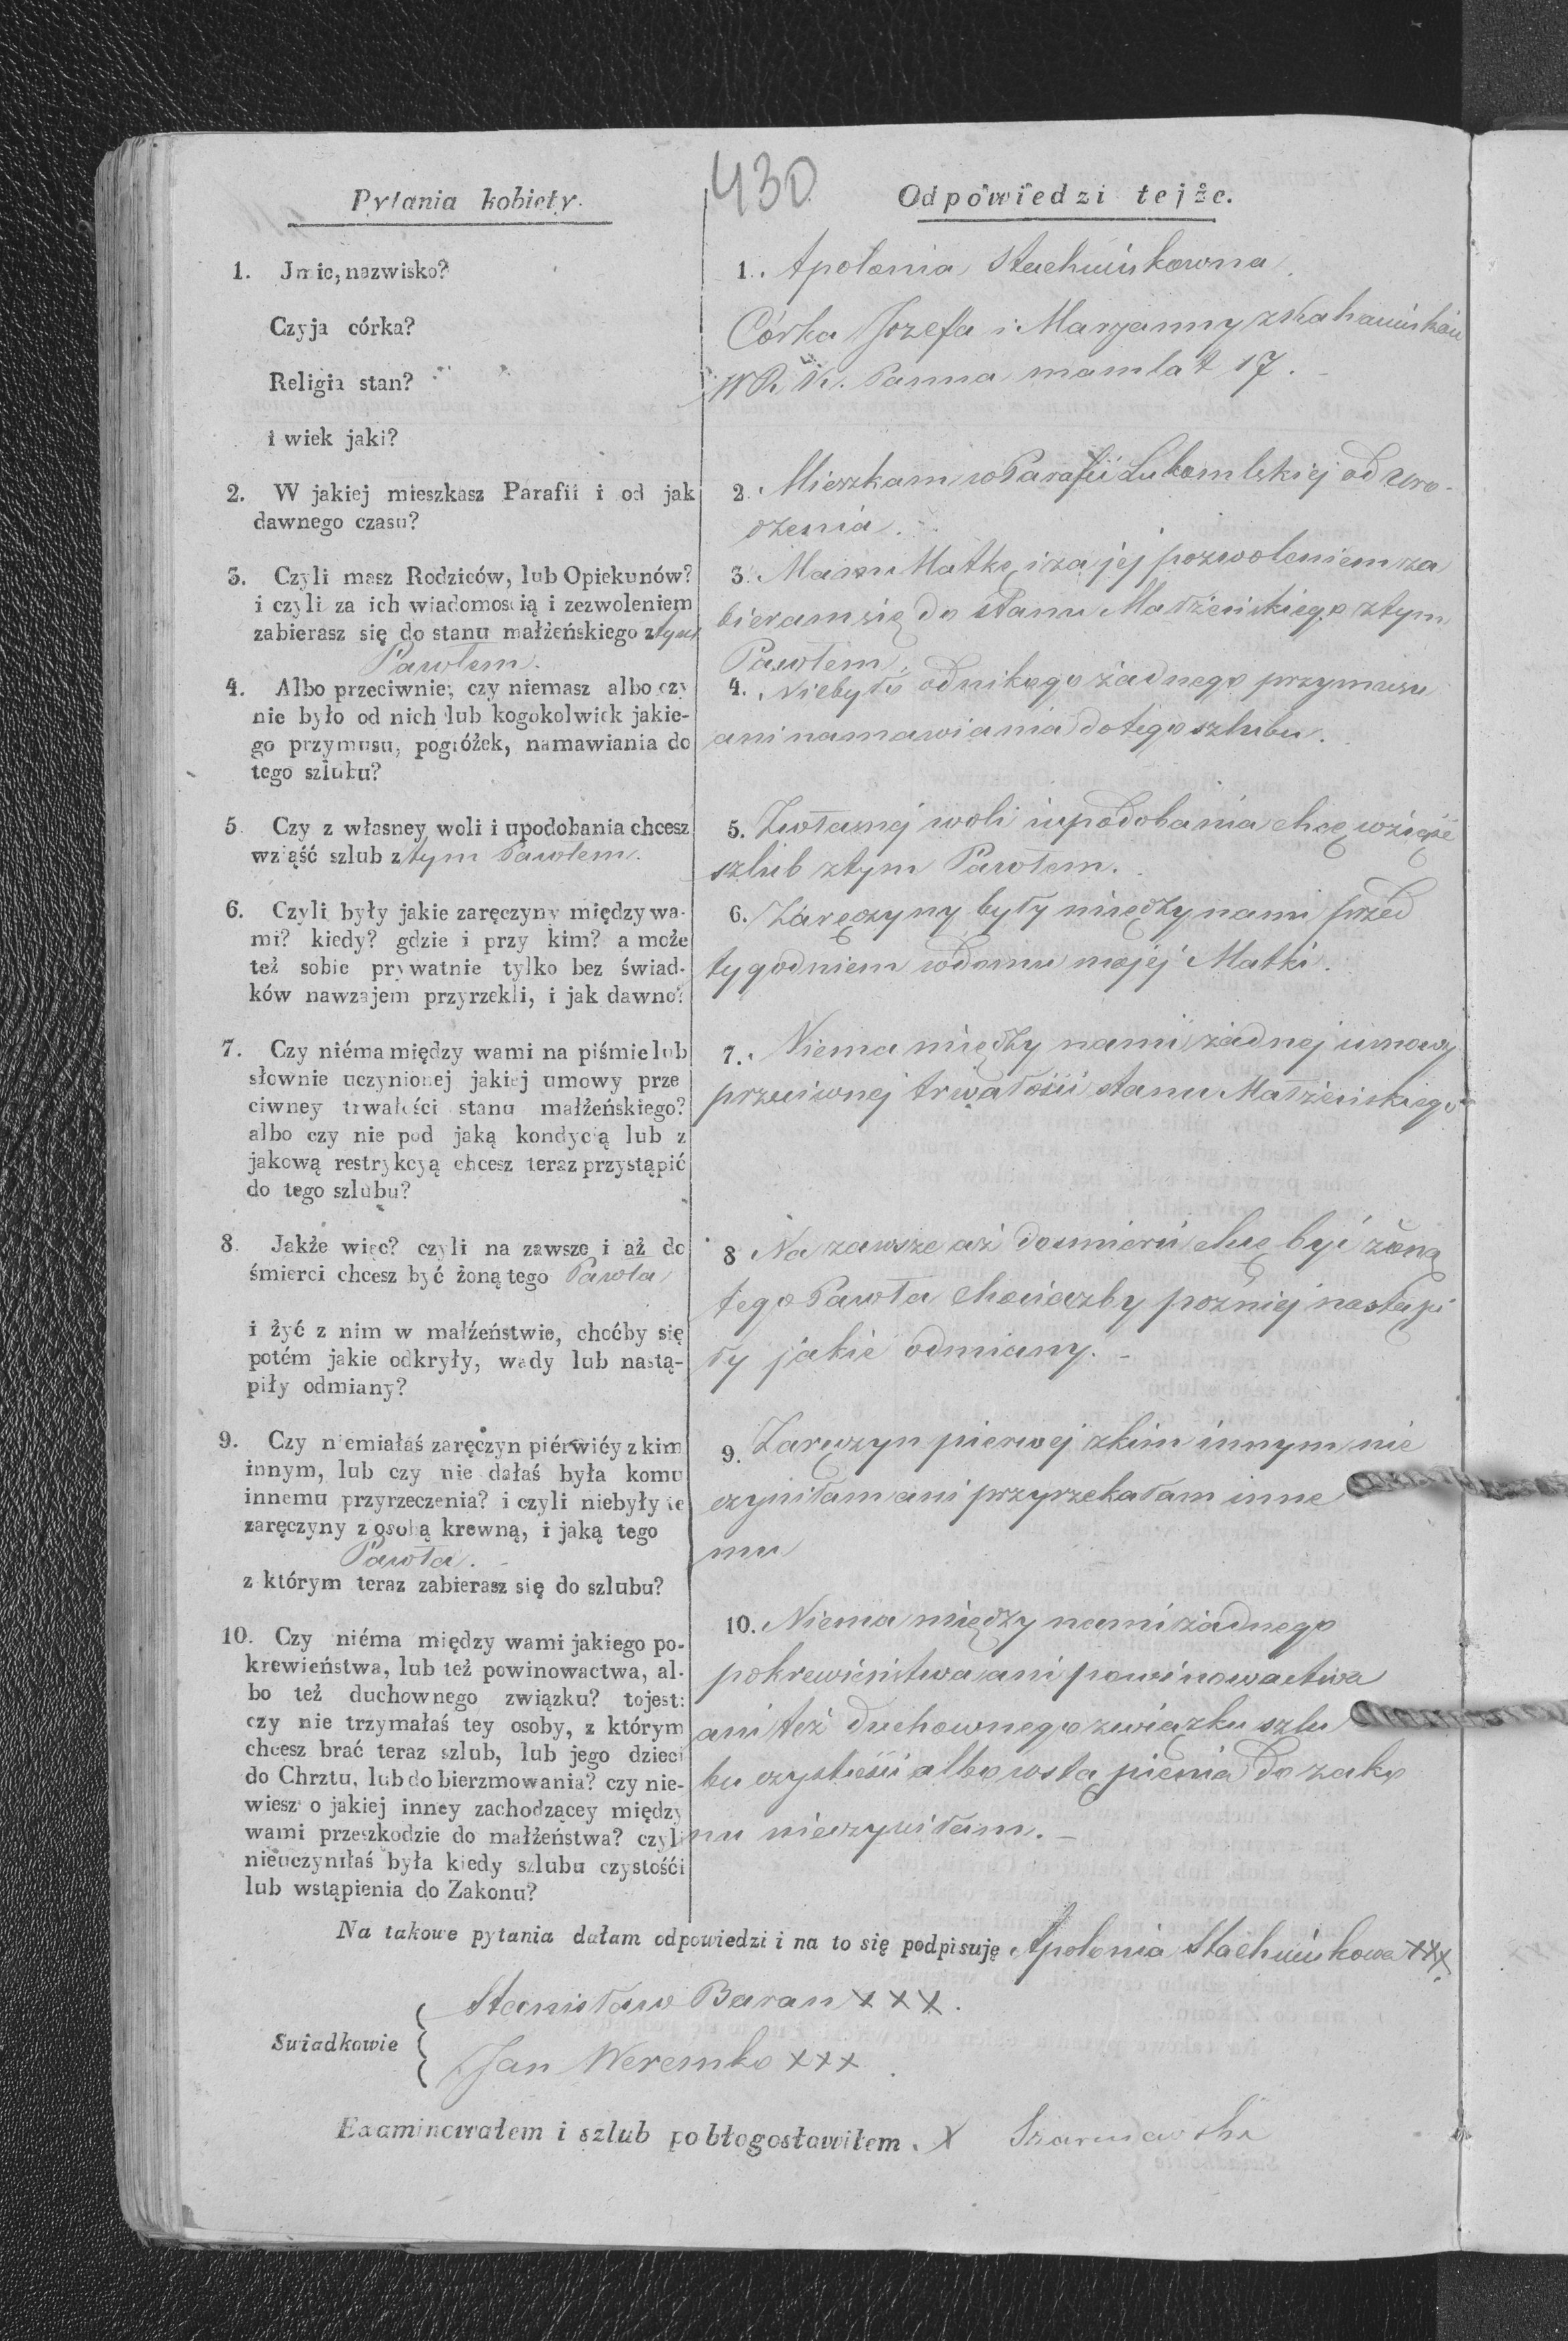 430
Pytania kobiety.
1. Jmie, nazwisko?
Czyja córka?
Religia stan?
i wiek jaki?
2. W jakiej mieszkasz Parafii i od jak
dawnego czasu?
3. Czyli masz Rodziców, lub Opiekunów?
i czyli za ich wiadomością i zezwoleniem
zabierasz się do stanu małżeńskiego z tym
Pawłem.
4. Albo przeciwnie, czy niemasz albo czy
nie było od nich lub kogokolwiek jakie-
go przymusu, pogróżek, namawiania do
tego szlubu?
5. Czy z własney woli i upodobania chcesz
wziąść szlub z tym Pawłem.
6. Czyli były jakie zaręczyny między wa-
mi? kiedy? gdzie i przy kim? a może
też sobie prywatnie tylko bez świad-
ków nawzajem przyrzekli, i jak dawno?
7. Czy niéma między wami na piśmie lub
słownie uczynionej jakiej umowy prze
ciwney trwałości stanu małżeńskiego?
albo czy nie pod jaką kondycią lub z
jakową restrykcyą chcesz teraz przystąpić
do tego szlubu?
8. Jakże więc? czyli na zawsze i aż do
śmierci chcesz być żoną tego Pawła
i żyć z nim w małżeństwie, choćby się
potém jakie odkryły, wady lub nastą-
piły odmiany?
9. Czy niemiałaś zaręczyn piérwiéy z kim
innym, lub czy nie dałaś była komu
innemu przyrzeczenia? i czyli niebyły te
zaręczyny z osobą krewną, i jaką tego
Pawła.
z którym teraz zabierasz się do szlubu?
10. Czy niéma między wami jakiego po-
krewieństwa, lub też powinowactwa, al-
bo też duchownego związku? tojest:
czy nie trzymałaś tey osoby, z którym
chcesz brać teraz szlub, lub jego dzieci
do Chrztu, lub do bierzmowania? czy nie-
wiesz o jakiej inney zachodzącey między
wami przeszkodzie do małżeństwa? czyli
nieuczyniłaś była kiedy szlubu czystośći
lub wstąpienia do Zakonu?
Odpowiedzi tejże.
1. Apolonia Stachniukowna
Córka Jozefa i Maryanny z
W R. K. Panna mam lat 17.
2. Mieszkam w Parafii Lubomlskiej od uro-
dzenia.
3. Mam Matkę i za jej pozwoleniem za
bieram się do stanu Małżeńskiego z tym
Pawłem.
4. Niebyło od nikogo żadnego przymusu
ani namawiania do tego szlubu.
5. Z własnej woli i upodobania chcę wziąść
szlub z tym Pawłem.
6. Zaręczyny były między nami przed
tygodniem w domu mojej Matki.
7. Niema między nami żadnej umowy
przeciwnej trwałości stanu Małżeńskiego
8 Na zawsze aż do smierci chcę być żoną
tego Pawła chociażby pożniej nastąpi
ły jakie odmiany.
9. Zaręczyn pierwej z kim innym nie
czyniłam ani przyrzekałam inne
mu
10. Niema między nami żadnego
pokrewieństwa ani powinowactwa
ani też duchownego związku szlu
bu czystości albo wstąpienia do zako
nu nieczyniłam.
Na takowe pytania dałam odpowiedzi i na to się podpisuję Apolonia Stachniukowa XXX.
Swiadkowie
Stanisław Baran XXX.
Jan Weremko XXX
Examinowałem i szlub pobłogosławiłem. X